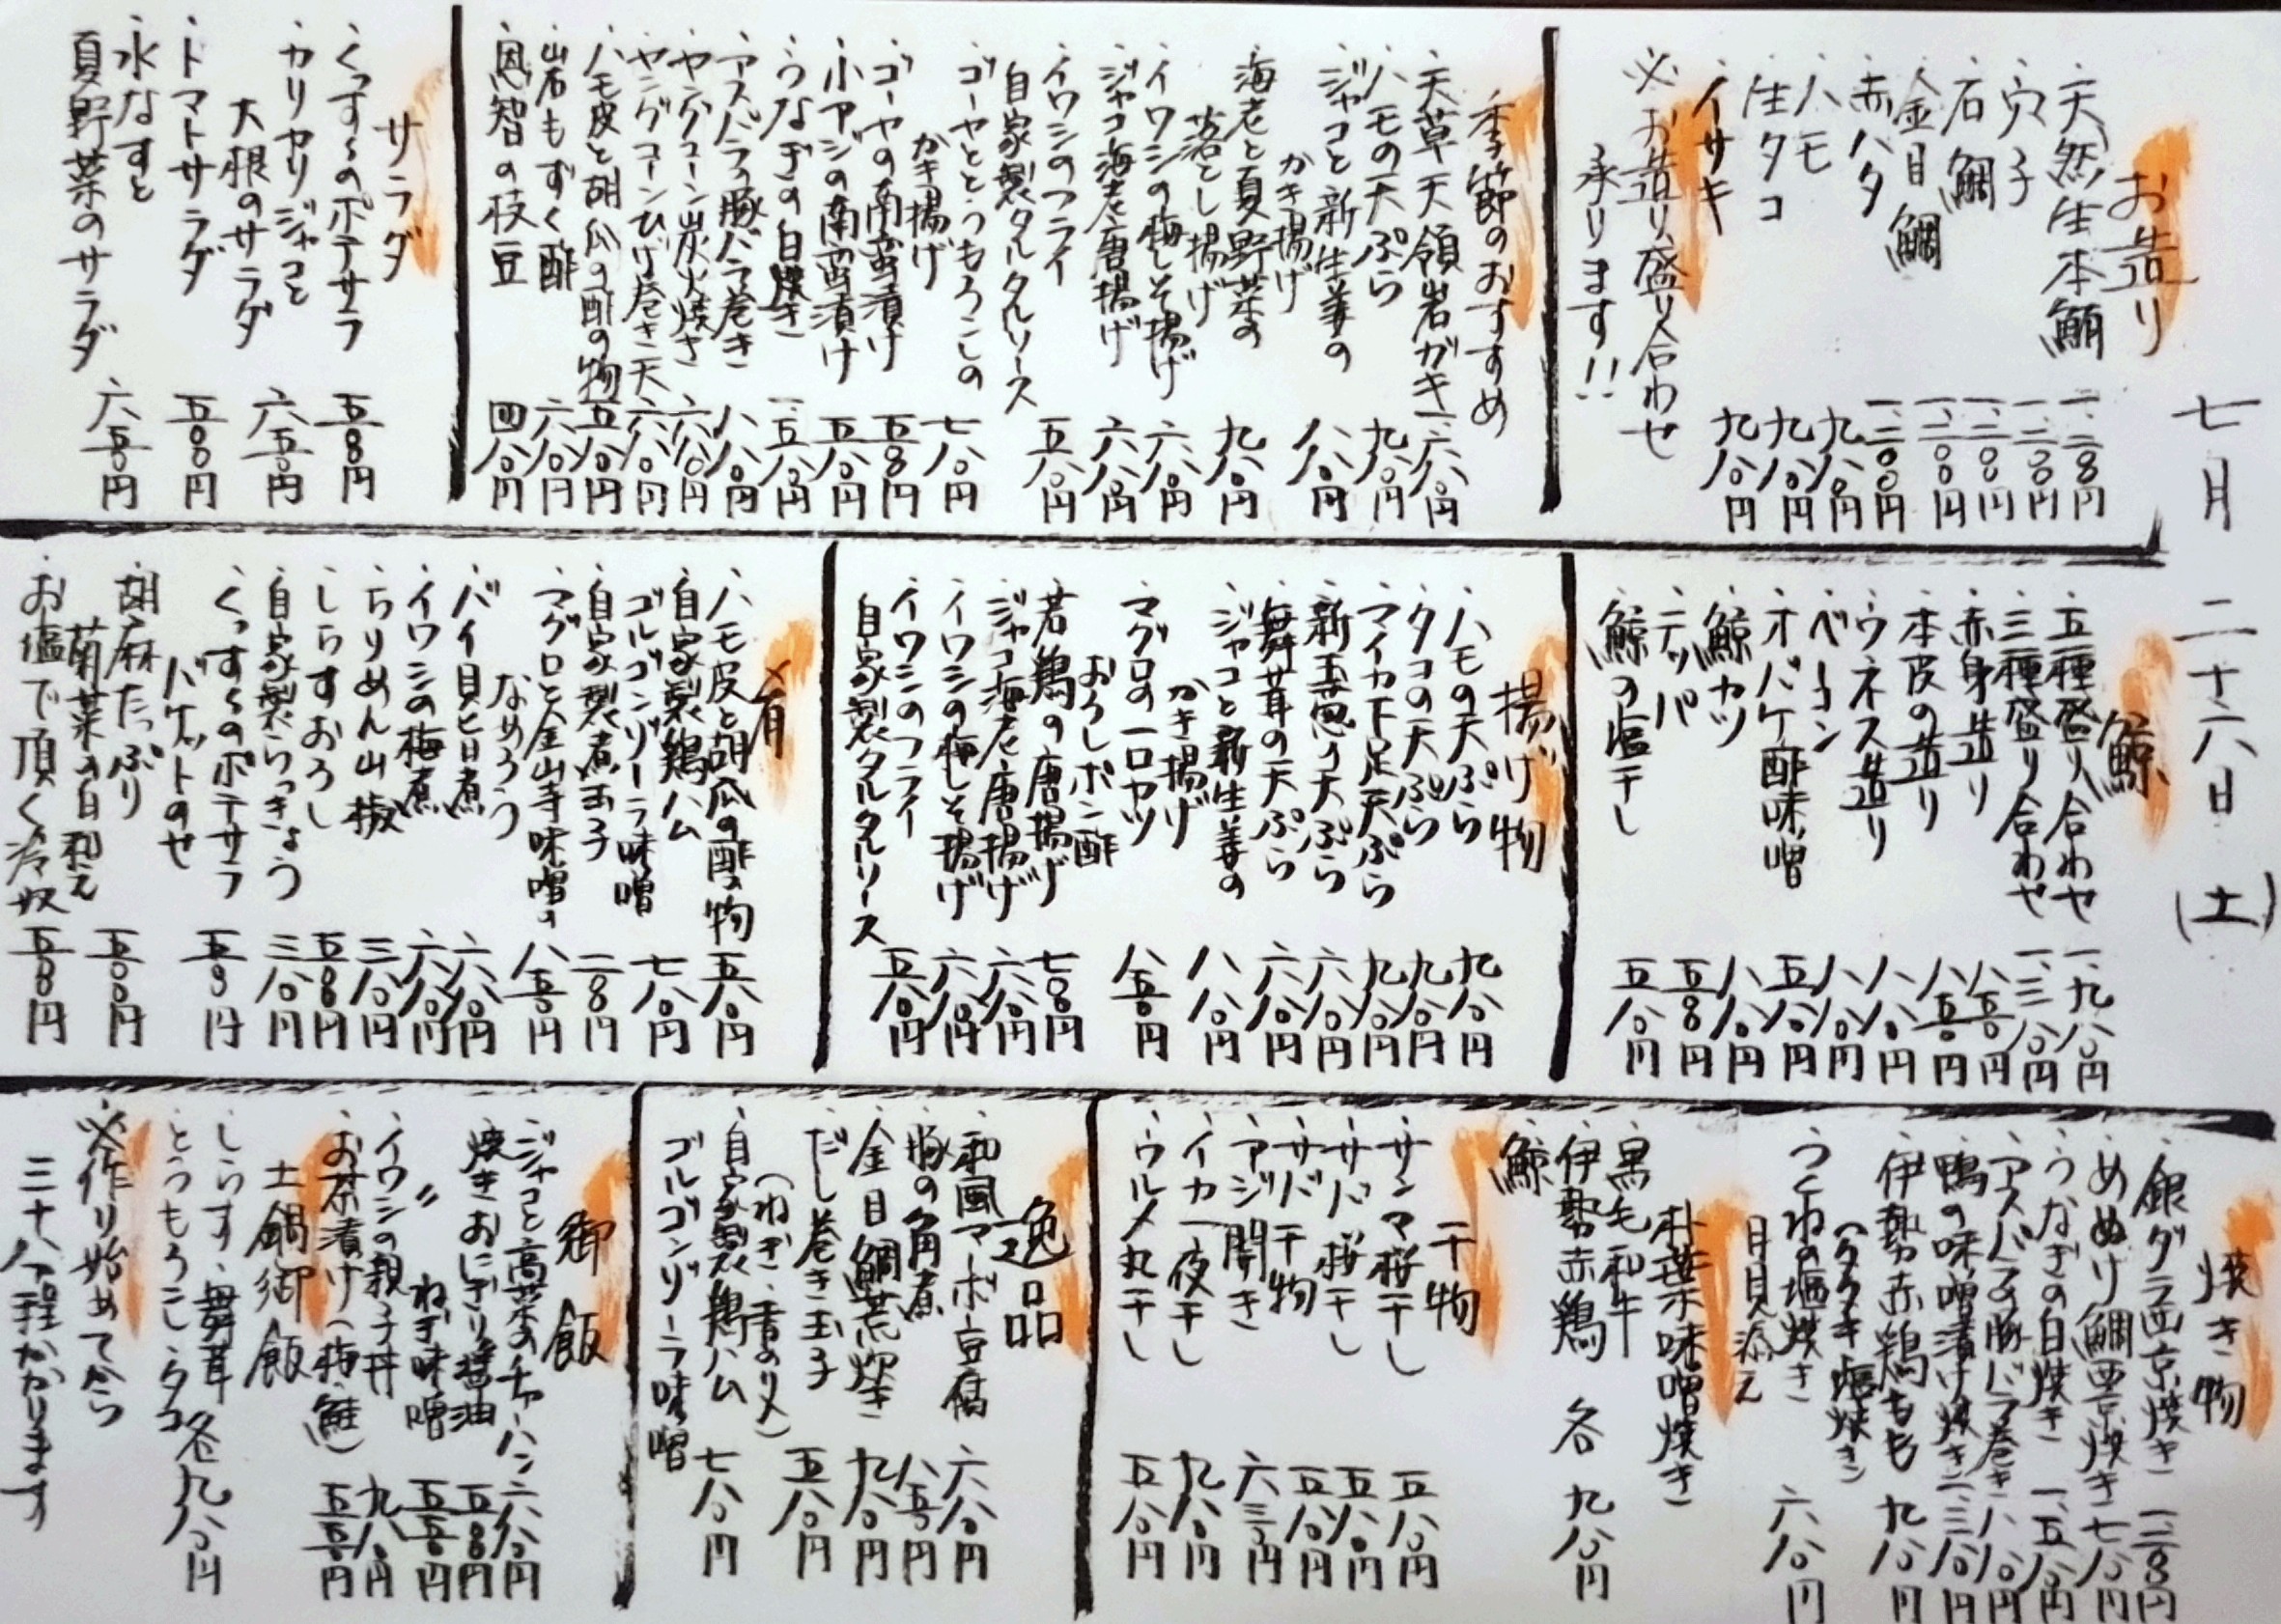 七月二十六日(土)
お造り
・天然生本鮪 一、二〇〇円
・穴子 一、二〇〇円
・石鯛 一、二〇〇円
・金目鯛 一、二〇〇円
・赤ハタ 一、二〇〇円
・ハモ 九八〇円
・生タコ 九八〇円
・イサキ 九八〇円
※お造り盛り合わせ
承ります!!
季節のおすすめ
・天草天領岩ガキ 一、六八〇円
・ハモの天ぷら 九八〇円
・ジャコと新生姜の
かき揚げ 八八〇円
・海老と夏野菜の
落とし揚げ 九八〇円
・イワシの梅しそ揚げ 六八〇円
・ジャコ海老唐揚げ 六八〇円
・イワシのフライ
自家製タルタルソース 五八〇円
・ゴーヤととうもろこしの
かき揚げ 七八〇円
・ゴーヤの南蛮漬け 五五〇円
・小アジの南蛮漬け 五八〇円
・うなぎの白焼き 一、五八〇円
・アスパラの豚バラ巻き 八八〇円
・ヤングコーン炭火焼き 六八〇円
・ヤングコーンひげ巻き天 六八〇円
・ハモ皮と胡瓜の酢の物 五八〇円
・岩もずく酢 六八〇円
・恩智の枝豆 四八〇円
サラダ
・くっすんのポテサラ 五五〇円
・カリカリジャコと
大根のサラダ 六五〇円
・トマトサラダ 五五〇円
・水なすと
夏野菜のサラダ 六五〇円
鯨
・五種盛り合わせ 一、九八〇円
・三種盛り合わせ 一、三八〇円
・赤身造り 八五〇円
・本皮の造り 八五〇円
・ウネス造り 八八〇円
・ベーコン 八八〇円
・オバケ酢味噌 五八〇円
・鯨カツ 八八〇円
・テッパ 五五〇円
・鯨の塩干し 五八〇円
揚げ物
・ハモの天ぷら 九八〇円
・タコの天ぷら 九八〇円
・マイカ下足天ぷら 九八〇円
・新玉葱の天ぷら 六八〇円
・舞茸の天ぷら 六八〇円
・ジャコと新生姜の
かき揚げ 八八〇円
・マグロの一口カツ
おろしポン酢 八五〇円
・若鶏の唐揚げ 七五〇円
・ジャコ海老唐揚げ 六八〇円
・イワシの梅しそ揚げ 六八〇円
・イワシのフライ
自家製タルタルソース 五八〇円
肴
・ハモ皮と胡瓜の酢の物 五八〇円
・自家製鶏ハム
ゴルゴンゾーラ味噌 七八〇円
・自家製煮玉子 二〇〇円
・マグロと金山寺味噌の
なめろう 八五〇円
・バイ貝旨煮 六八〇円
・イワシの梅煮 六八〇円
・ちりめん山椒 三八〇円
・しらすおろし 五五〇円
・自家製らっきょう 三八〇円
・くっすんのポテサラ
バゲットのせ 五五〇円
・胡麻たっぷり
菊菜の白和え 五五〇円
・お塩で頂く冷奴 五五〇円
焼き物
・銀ダラ西京焼き 一、二〇〇円
・めぬけ鯛西京焼き 七八〇円
・うなぎの白焼き 一、五八〇円
・アスパラの豚バラ巻き 八八〇円
・鴨の味噌漬け焼き 一、三八〇円
・伊勢赤鶏もも
(タタキ・塩焼き) 九八〇円
・つくねの塩焼き
月見添え 六八〇円
朴葉味噌焼き
・黒毛和牛
・伊勢赤鶏 各 九八〇円
・鯨
干物
・サンマ桜干し 五八〇円
・サバ桜干し 五八〇円
・サバ干物 五八〇円
・アジ開き 六三〇円
・イカ一夜干し 九八〇円
・ウルメ丸干し 五八〇円
逸品
・和風マーボ豆腐 六八〇円
・豚の角煮 八五〇円
・金目鯛荒炊き 九八〇円
・だし巻き玉子
(ねぎ・青のり〆) 五八〇円
・自家製鶏ハム
ゴルゴンゾーラ味噌 七八〇円
御飯
・ジャコと高菜のチャーハン 六八〇円
・焼きおにぎり醤油 五五〇円
・〃 ねぎ味噌 五五〇円
・イワシの親子丼 九八〇円
・お茶漬け(梅・鮭) 五五〇円
土鍋御飯
・しらす・舞茸
・とうもろこし・タコ 各九八〇円
※作り始めてから
三十八分程かかります